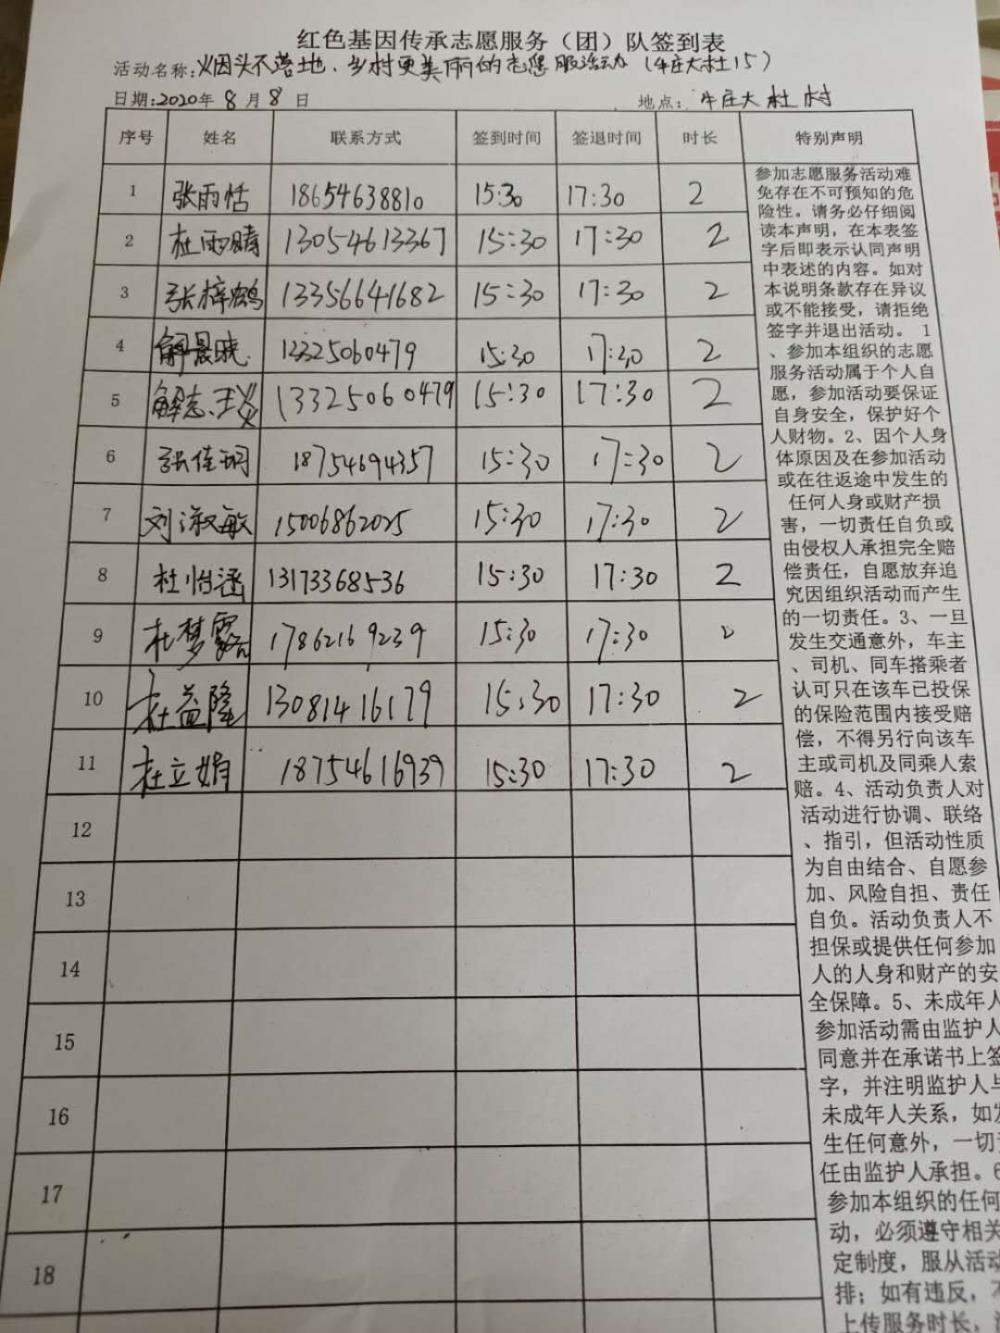 红色基因传承志愿服务（团）队签到表
活动名称:烟头不落地、乡村更美丽的志愿服务活动（牛庄大杜15）
日期:2020年8月8日 地点:牛庄大杜村
序号 姓名 联系方式 签到时间 签退时间 时长 特别声明
1 张雨恬 18654638810 15:30 17:30 2
2 杜雨晴 13054613367 15:30 17:30 2
3 张梓鹤 13356641682 15:30 17:30 2
4 解晨晓 13325060479 15:30 17:30 2
5 解志义 13325060479 15:30 17:30 2
6 张佳玥 18754694357 15:30 17:30 2
7 刘淑敏 15006862025 15:30 17:30 2
8 杜怡涵 13173368536 15:30 17:30 2
9 杜梦露 17862169239 15:30 17:30 2
10 杜益隆 13081416179 15:30 17:30 2
11 杜立娟 18754616939 15:30 17:30 2
12
13
14
15
16
17
18
参加志愿服务活动难
免存在不可预知的危
险性。请务必仔细阅
读本声明，在本表签
字后即表示认同声明
中表述的内容。如对
本说明条款存在异议
或不能接受，请拒绝
签字并退出活动。 1
、参加本组织的志愿
服务活动属于个人自
愿，参加活动要保证
自身安全，保护好个
人财物。2、因个人身
体原因及在参加活动
或在往返途中发生的
任何人身或财产损
害，一切责任自负或
由侵权人承担完全赔
偿责任，自愿放弃追
究因组织活动而产生
的一切责任。3、一旦
发生交通意外，车主
、司机、同车搭乘者
认可只在该车已投保
的保险范围内接受赔
偿，不得另行向该车
主或司机及同乘人索
赔。4、活动负责人对
活动进行协调、联络
、指引，但活动性质
为自由结合、自愿参
加、风险自担、责任
自负。活动负责人不
担保或提供任何参加
人的人身和财产的安
全保障。5、未成年人
参加活动需由监护人
同意并在承诺书上签
字，并注明监护人与
未成年人关系，如发
生任何意外，一切责
任由监护人承担。6
参加本组织的任何
动，必须遵守相关
定制度，服从活动
排；如有违反，不
上传服务时长，